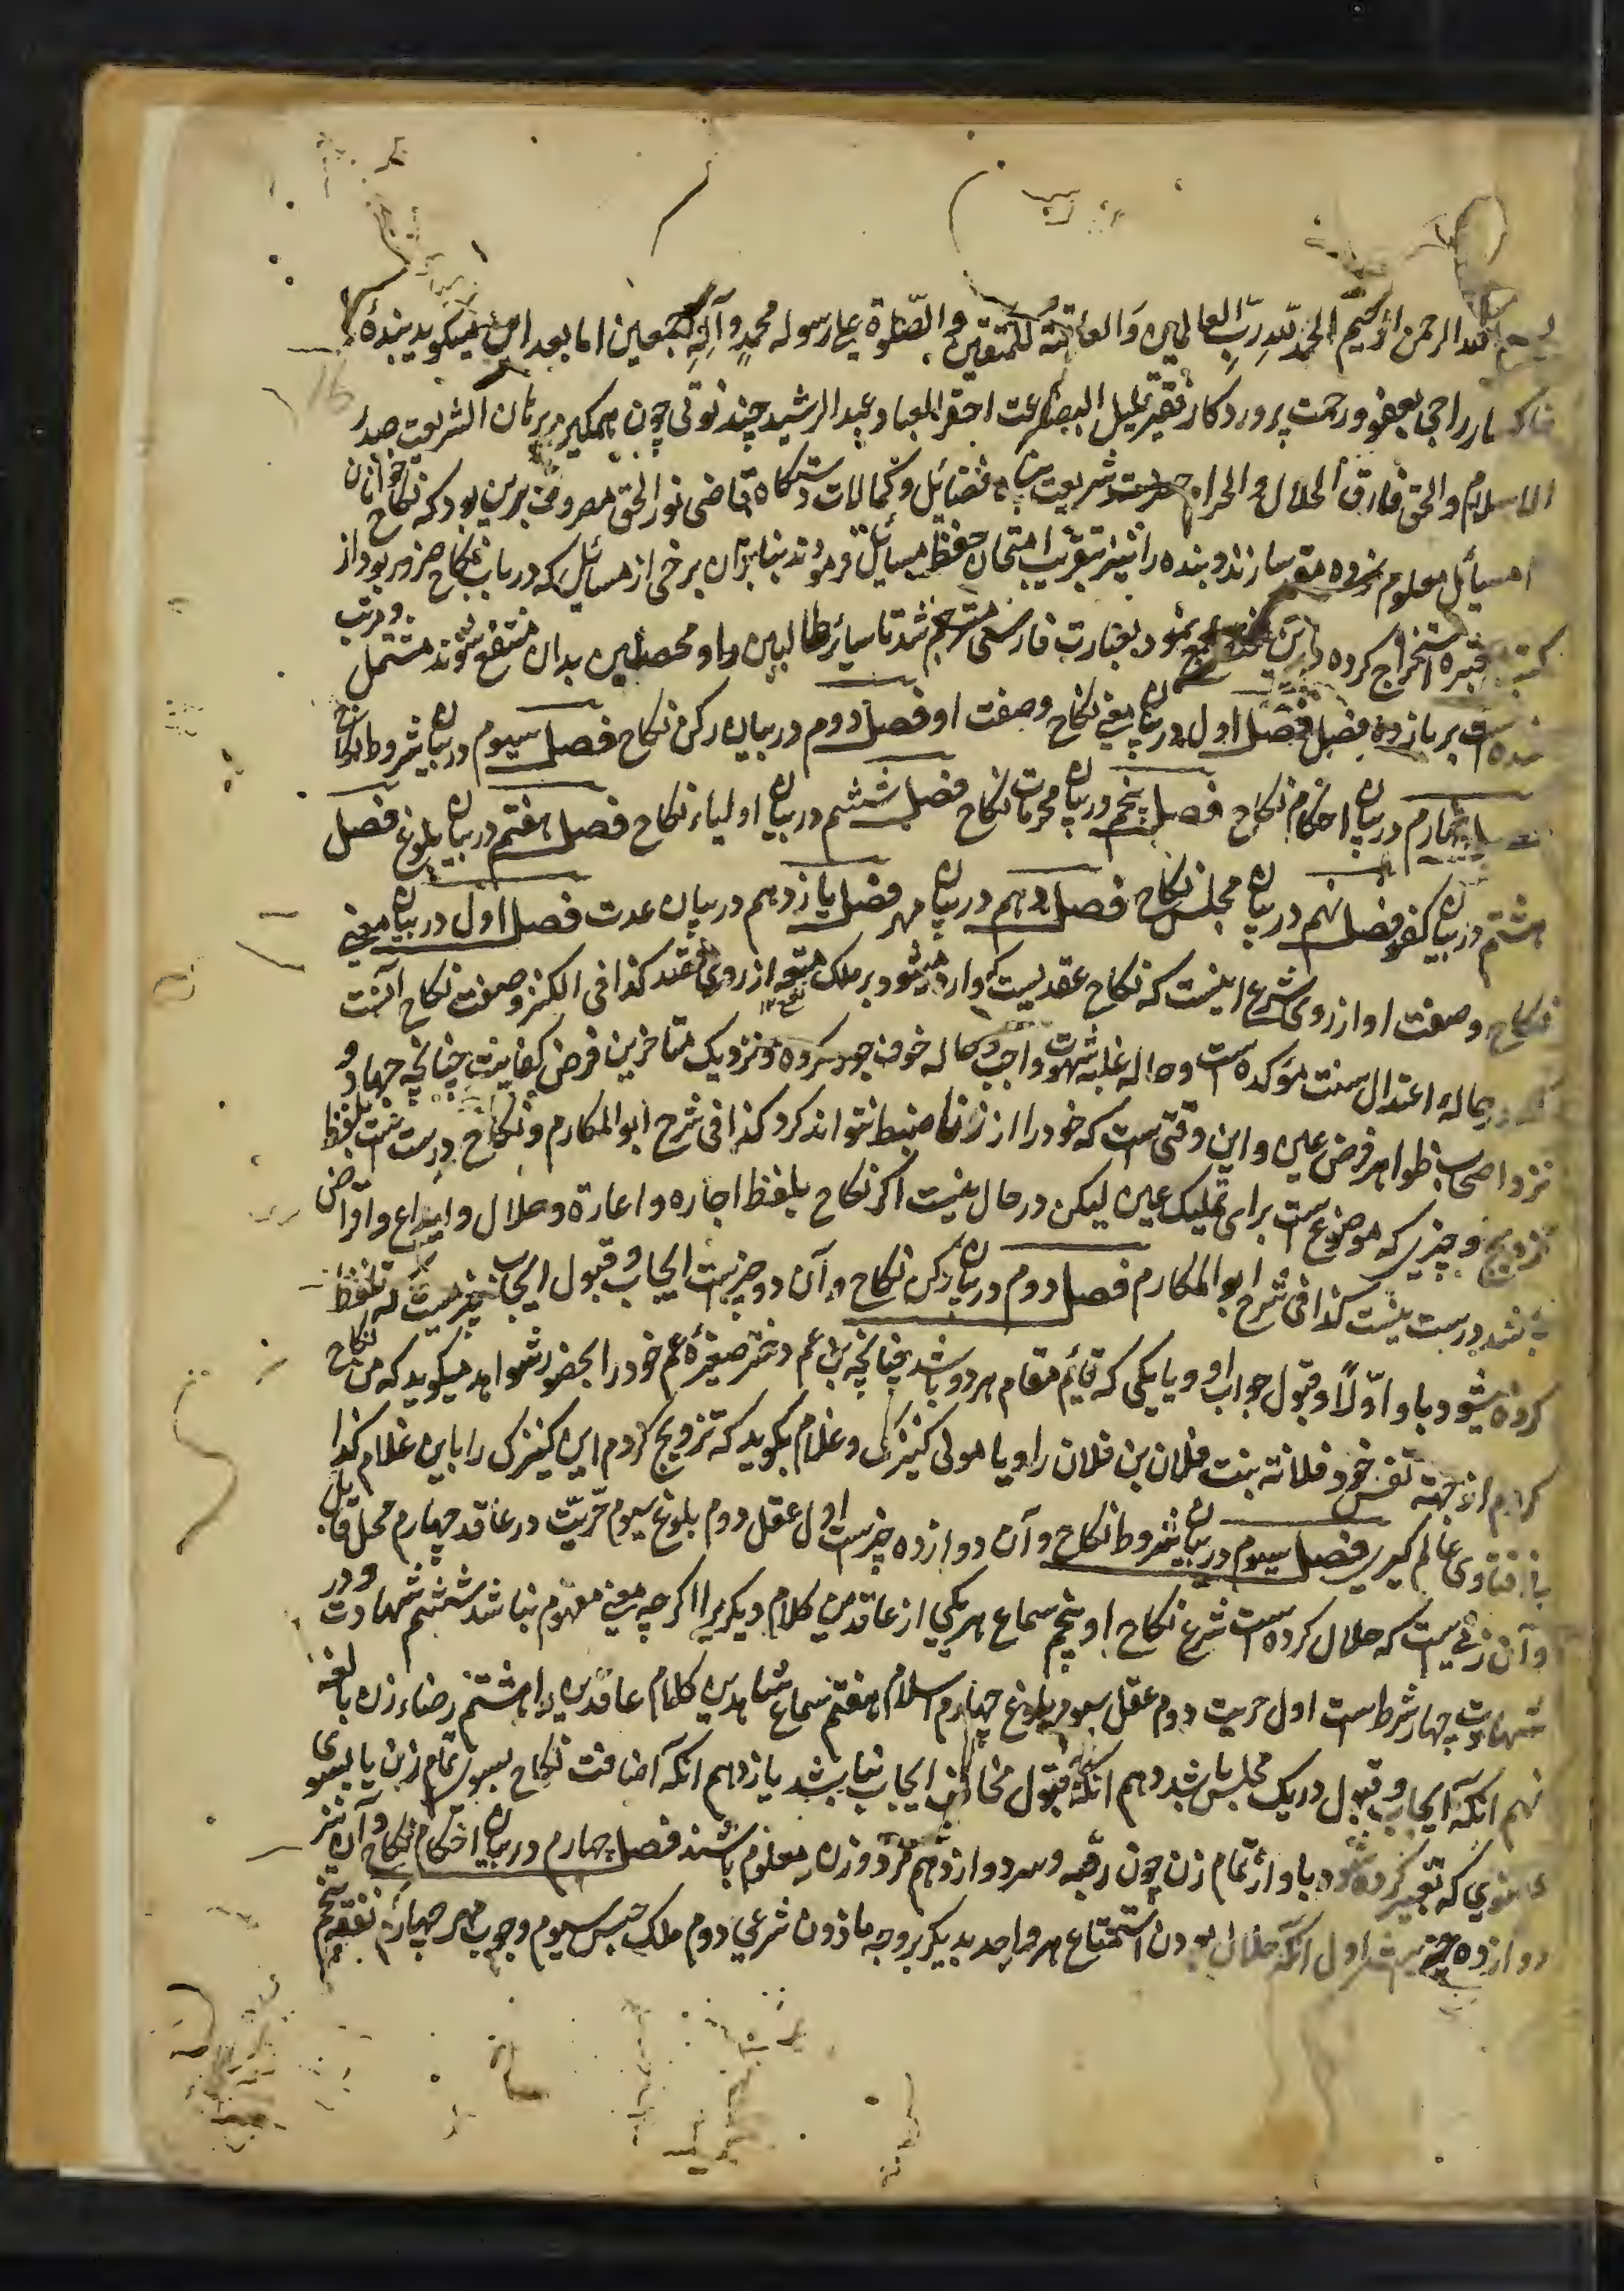 بسم الله الرحمن الرحیم الحمد لله رب العالمین والعاقبة للمتقین والصلوة علی رسوله محمد وآله اجمعین اما بعد این میکوید بندهٔ
خاکسار راجی بعفو ورحمت پروردکار فقیر قلیل البضاعت احقر العباد عبد الرشید چون برهان الشریعت صدر
الاسلام والحق فارق الحلال والحرام شریعت پناه فضائل وکمالات دستکاه قاضی نور الحق مصروف برین بود که نکاح خوانان
را مسائل معلوم نموده مقرر سازند و بنده را نیز بتقریب امتحان حفظ مسائل فرمودند بنابران برخی از مسائل که در باب نکاح ضرور بود از
کتب معتبره استخراج کرده درین جمع نمود بعبارت فارسی مترجم شد تا سائر طالبین را و محصلین بدان منتفع شوند و مرتب مشتمل
شده است بر یازده فصل فصل اول در بیان معنی نکاح وصفت او فصل دوم در بیان رکن نکاح فصل سیوم در بیان شروط نکاح
فصل چهارم در بیان احکام نکاح فصل پنجم در بیان محرمات نکاح فصل ششم در بیان اولیاء نکاح فصل هفتم در بیان بلوغ فصل
هشتم در بیان کفو فصل نهم در بیان مجلس نکاح فصل دهم در بیان مهر فصل یازدهم در بیان عدت فصل اول در بیان معنی
نکاح وصفت او از روی شرع اینست که نکاح عقدیست که وارد میشود بر ملک متعه از روی قصد کذا فی الکنز وصفت نکاح آنست
که در حالهٔ اعتدال سنت موکده است و حاله غلبه شهوت واجب و حاله خوف جور مکروه و نزدیک متاخرین فرض کفایت چنانچه جهاد و
نزد اصحاب ظواهر فرض عین و این وقتی ست که خود را از زنا ضبط نتواند کرد کذا فی شرح ابو المکارم و نکاح درست ست بلفظ
تزویج و چیزی که موضوع ست برای تملیک عین لیکن در حال نیست اکر نکاح بلفظ اجاره و اعارة و حلال و ایداع و اقراض
باشد درست نیست کذا فی شرح ابو المکارم فصل دوم در بیان رکن نکاح و آن دو چیزست ایجاب و قبول ایجاب چیزیست که تلفظ
کرده میشود باو اوّلاً و قبول جواب او و یا یکی که قائم مقام هر دو باشد چنانچه ابن عم دختر صغیرهٔ عم خود را بحضور شواهد میکوید که من نکاح
کردم از جهة نفس خود فلانه بنت فلان بن فلان را و یا مولی کنیزک و غلام بکوید که تزویج کردم این کنیزک را باین غلام کذا
فی فتاوی عالم کیری فصل سیوم در بیان شروط نکاح و آن دوازده چیزست اول عقل دوم بلوغ سیوم حرّیّت در عاقد چهارم محل قابل
و آن زنی ست که حلال کرده است شرع نکاح او پنجم سماع هر یکی از عاقدین کلام دیکریرا اکرچه معنی مفهوم نباشد ششم شهادت و در
شهادت چهار شرط است اول حریت دوم عقل سیوم بلوغ چهارم اسلام هفتم سماع شاهدین کلام عاقدین را هشتم رضاء زن بالغه
نهم آنکه ایجاب و قبول در یک مجلس باشد دهم آنکه قبول مخالف ایجاب نباشد یازدهم آنکه اضافت نکاح بسوی تمام زن یا بسوی
عضوی که تعبیر کرده شود باو از تمام زن چون رقبه و سر دوازدهم مرد و زن معلوم باشند فصل چهارم در بیان احکام نکاح و آن نیز
دوازده چیزست اول آنکه حلال بودن استمتاع هر واحد بدیکر بر وجه ماذون شرعی دوم ملک حبس سیوم وجوب مهر چهارم نفقه پنجم